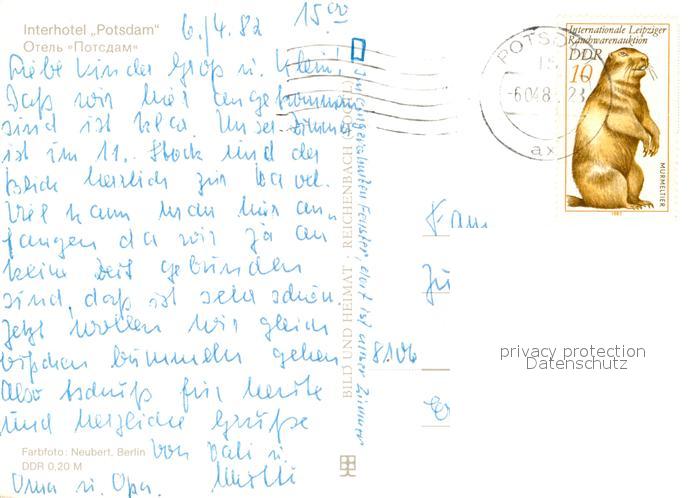 Interhotel „Potsdam"
Отель «Потсдам»
6./4.82 15.00
Liebe Kinder Groß u. Klein!
Daß wir hier angekommen
sind ist klar. Unser Zimmer
ist im 11. Stock und der
Blick herrlich zur Havel.
Viel kann man hier an-
fangen da wir ja an
keine Zeit gebunden
sind, daß ist sehr schön.
Jetzt wollen wir gleich
bißchen bummeln gehen
Also tschüß für heute
und herzliche Grüße
von Vati u.
Mutti
Oma u. Opa.
Farbfoto: Neubert, Berlin
DDR 0,20 M
Im angerahmten Fenster, dort ist unser Zimmer
BILD UND HEIMAT · REICHENBACH (VOGTL)
POTSD
15
-6.04.8 23
ax
Internationale Leipziger
Rauchwarenauktion
DDR
10
MURMELTIER
1982
Fam
Jü
8106
privacy protection
Datenschutz